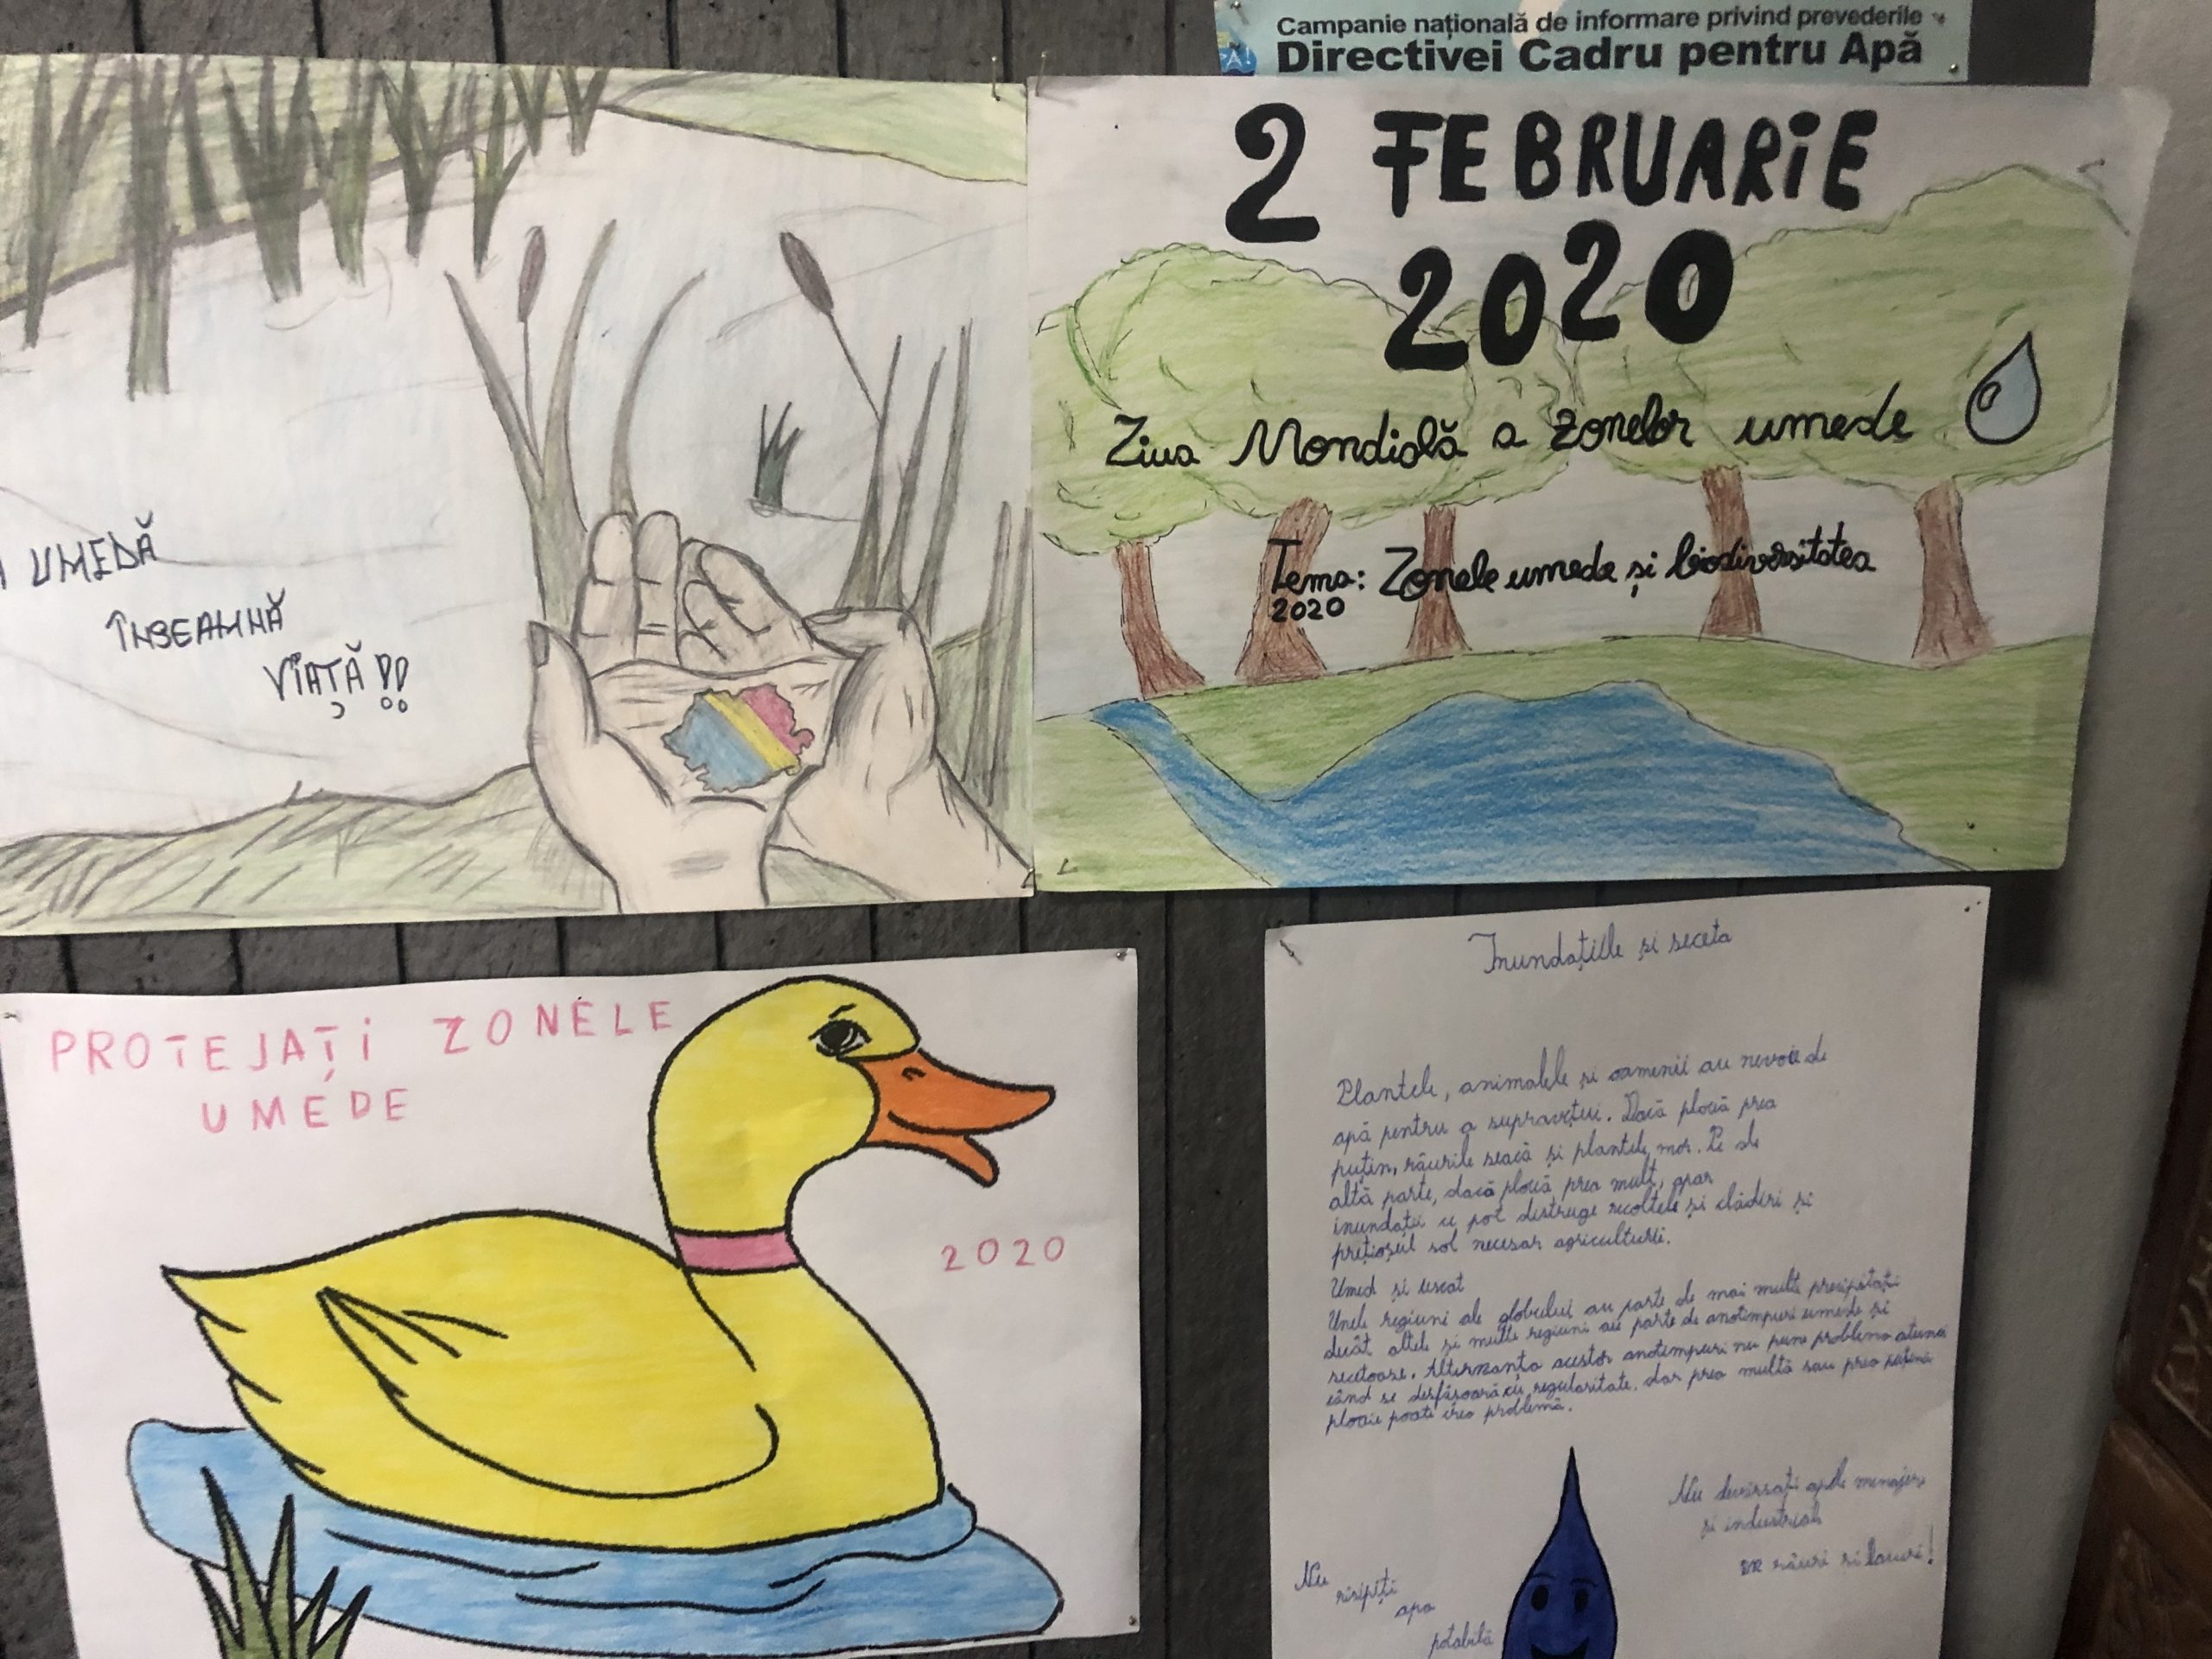 Campanie națională de informare privind prevederile
Directivei Cadru pentru Apă
UMEDĂ
ÎNSEAMNĂ
VIAȚĂ!!
2 FEBRUARIE
2020
Ziua Mondială a zonelor umede
Tema: Zonele umede și biodiversitatea
2020
PROTEJAȚI ZONELE
UMEDE
2020
Inundațiile și seceta
Plantele, animalele și oamenii au nevoie de
apă pentru a supravețui. Dacă plouă prea
puțin, râurile seacă și plantele mor. Pe de
altă parte, dacă plouă prea mult, apar
inundații ce pot distruge recoltele și clădiri și
prețiosul sol necesar agriculturii.
Umed și uscat
Unele regiuni ale globului au parte de mai multe precipitații
decât altele și multe regiuni au parte de anotimpuri umede și
secetoase. Alternanța acestor anotimpuri nu pune probleme atunci
când se desfășoară cu regularitate, dar prea multă sau prea puțină
ploaie poate crea problemă.
Nu deversați apele menajere
și industriale
în râuri și lacuri!
Nu
risipiți
apa
potabilă